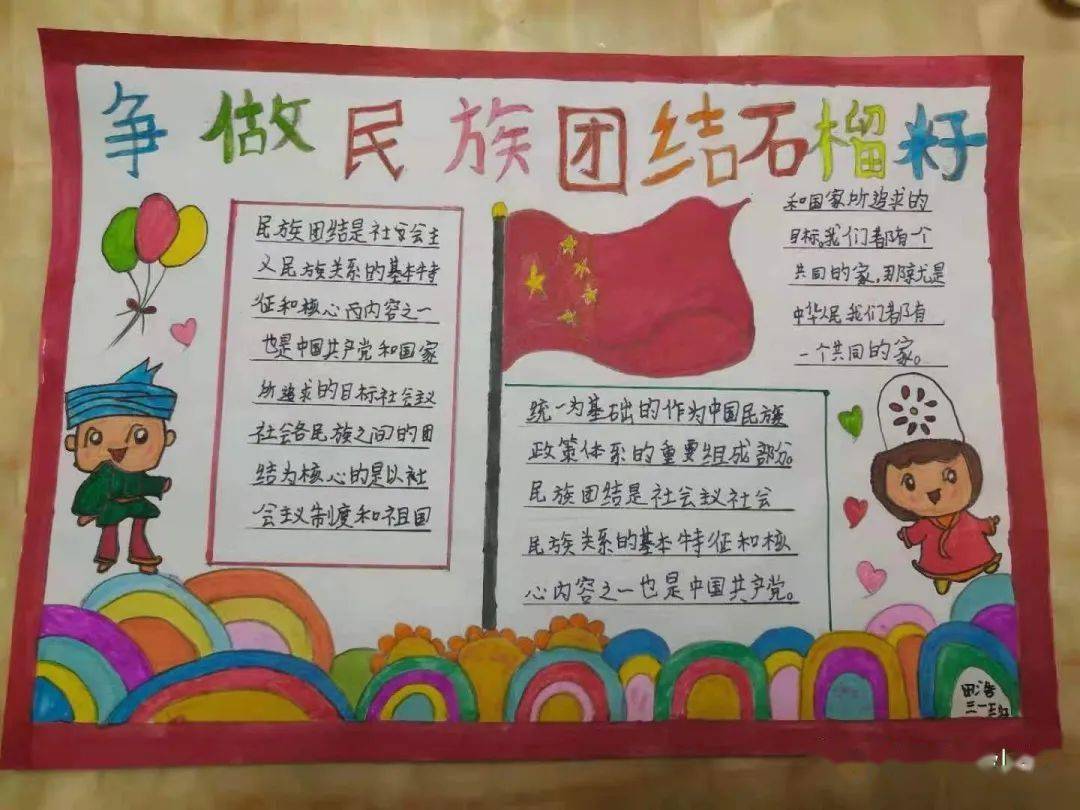 争做民族团结石榴籽
民族团结是社会会主
义民族关系的基本特
征和核心内内容之一
也是中国共产党和国家
所追求的目标社会主义
社会各民族之间的团
结为核心的是以社
会主义制度和祖国
统一为基础的作为中国民族
政策体系的重要组成部分。
民族团结是社会主义社会
民族关系的基本特征和核
心内容之一也是中国共产党。
和国家所追求的
目标。我们都有一个
共同的家,那就是
中华民我们都有
一个共同的家。
田浩